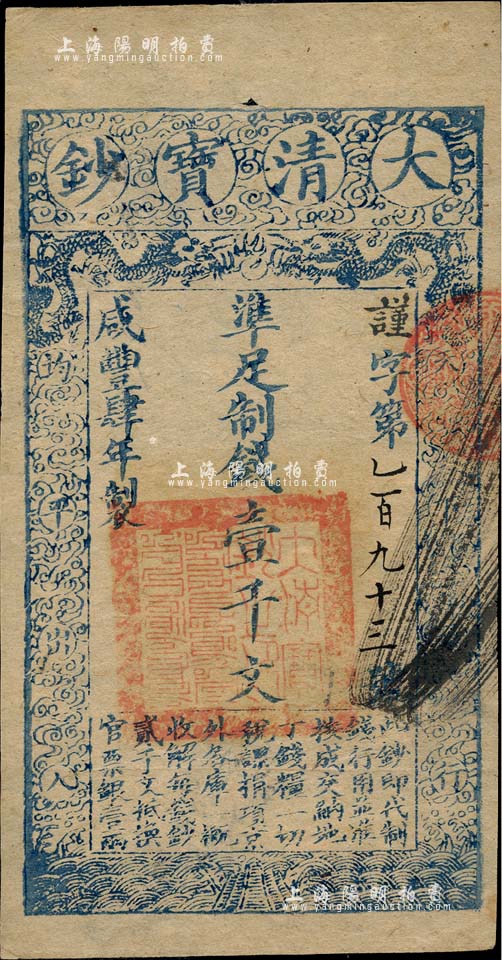 上海陽明拍賣
www.yangmingauction.com
大清寶鈔
謹字第乙百九十三號
準足制錢壹千文
咸豐肆年製
均平出入
此鈔即代制
錢行用並準
按成交納地
丁錢糧一切
稅課捐項京
外各庫一概
收解每錢鈔
貳千文抵換
官票銀壹兩
上海陽明拍賣
www.yangmingauction.com
上海陽明拍賣
www.yangmingauction.com